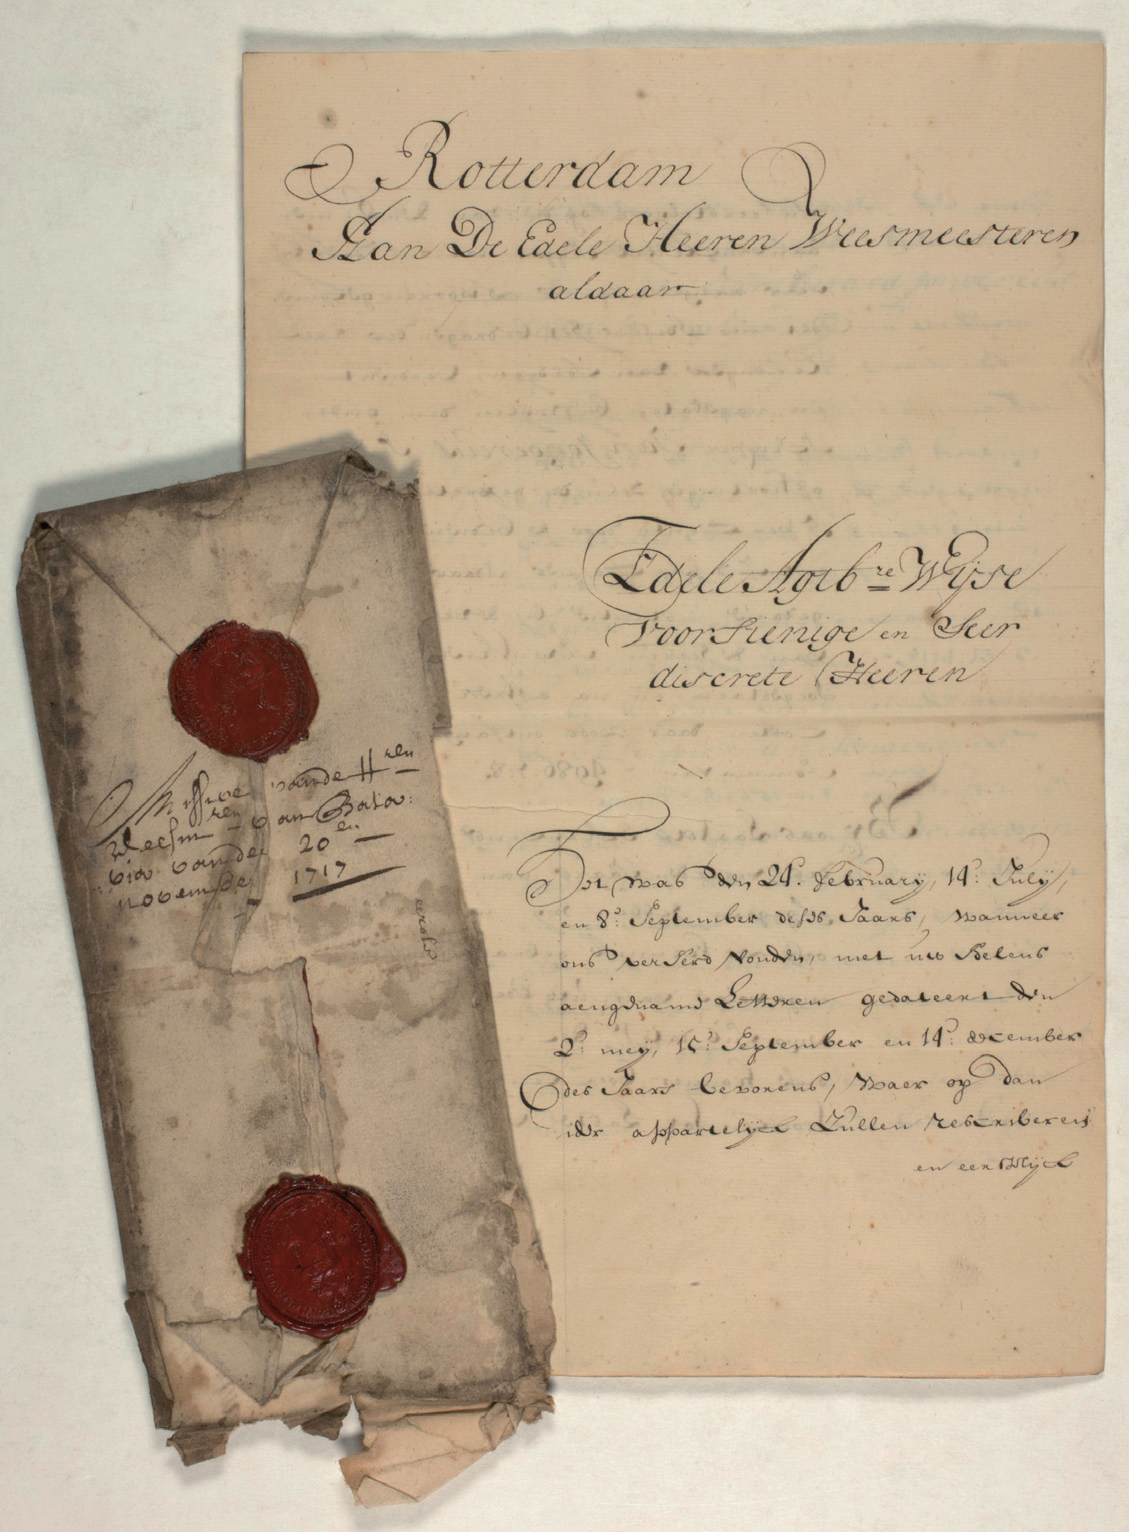 Rotterdam
Aan De Edele Heeren Weesmeesteren
aldaar
Edele Agtb.re Wijse
Voorsienige en Seer
discrete Heeren
Het was den 24.' February, 14.' July,
en 8.' September deses Jaars, wanneer
ons vereerd vonden, met uw Edelens
aengename Letteren gedateert den
2.' mey, 15.' September en 14.' december
des Jaars bevorens, waer op dan
ider appartelijck Zullen rescriberen
en eentlijck
Missive vande H.ren
Weesm.ren van Bata:
via vanden 20.en
november 1717